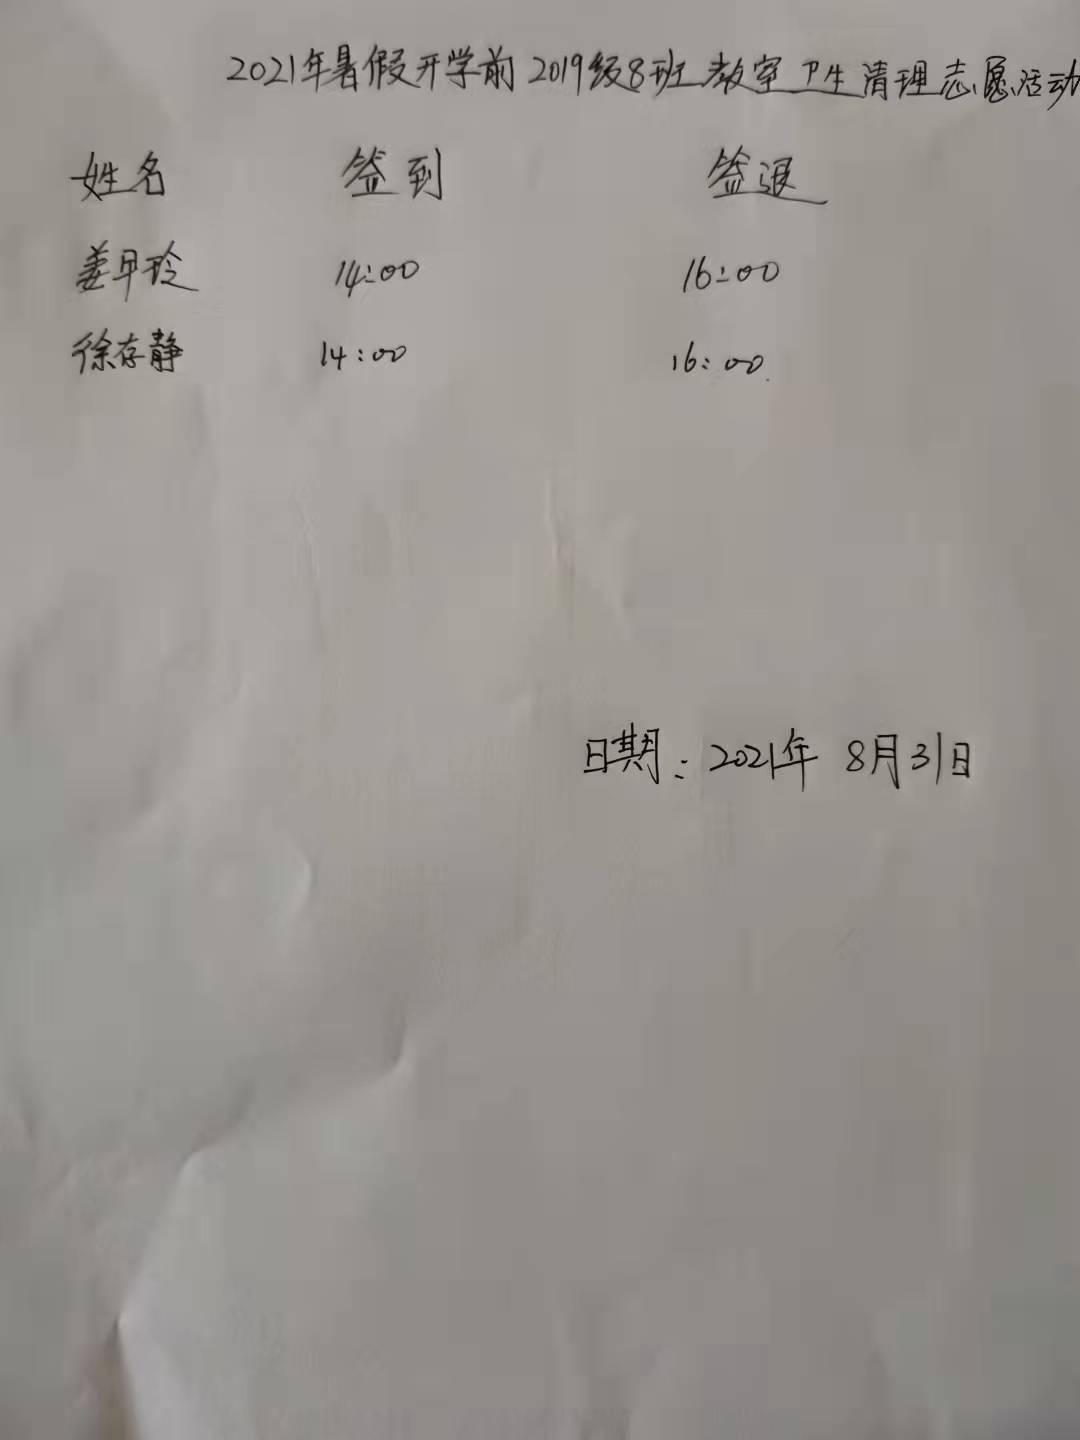 2021年暑假开学前2019级8班教室卫生清理志愿活动
姓名 签到 签退
姜早玲 14:00 16:00
徐存静 14:00 16:00
日期:2021年 8月31日